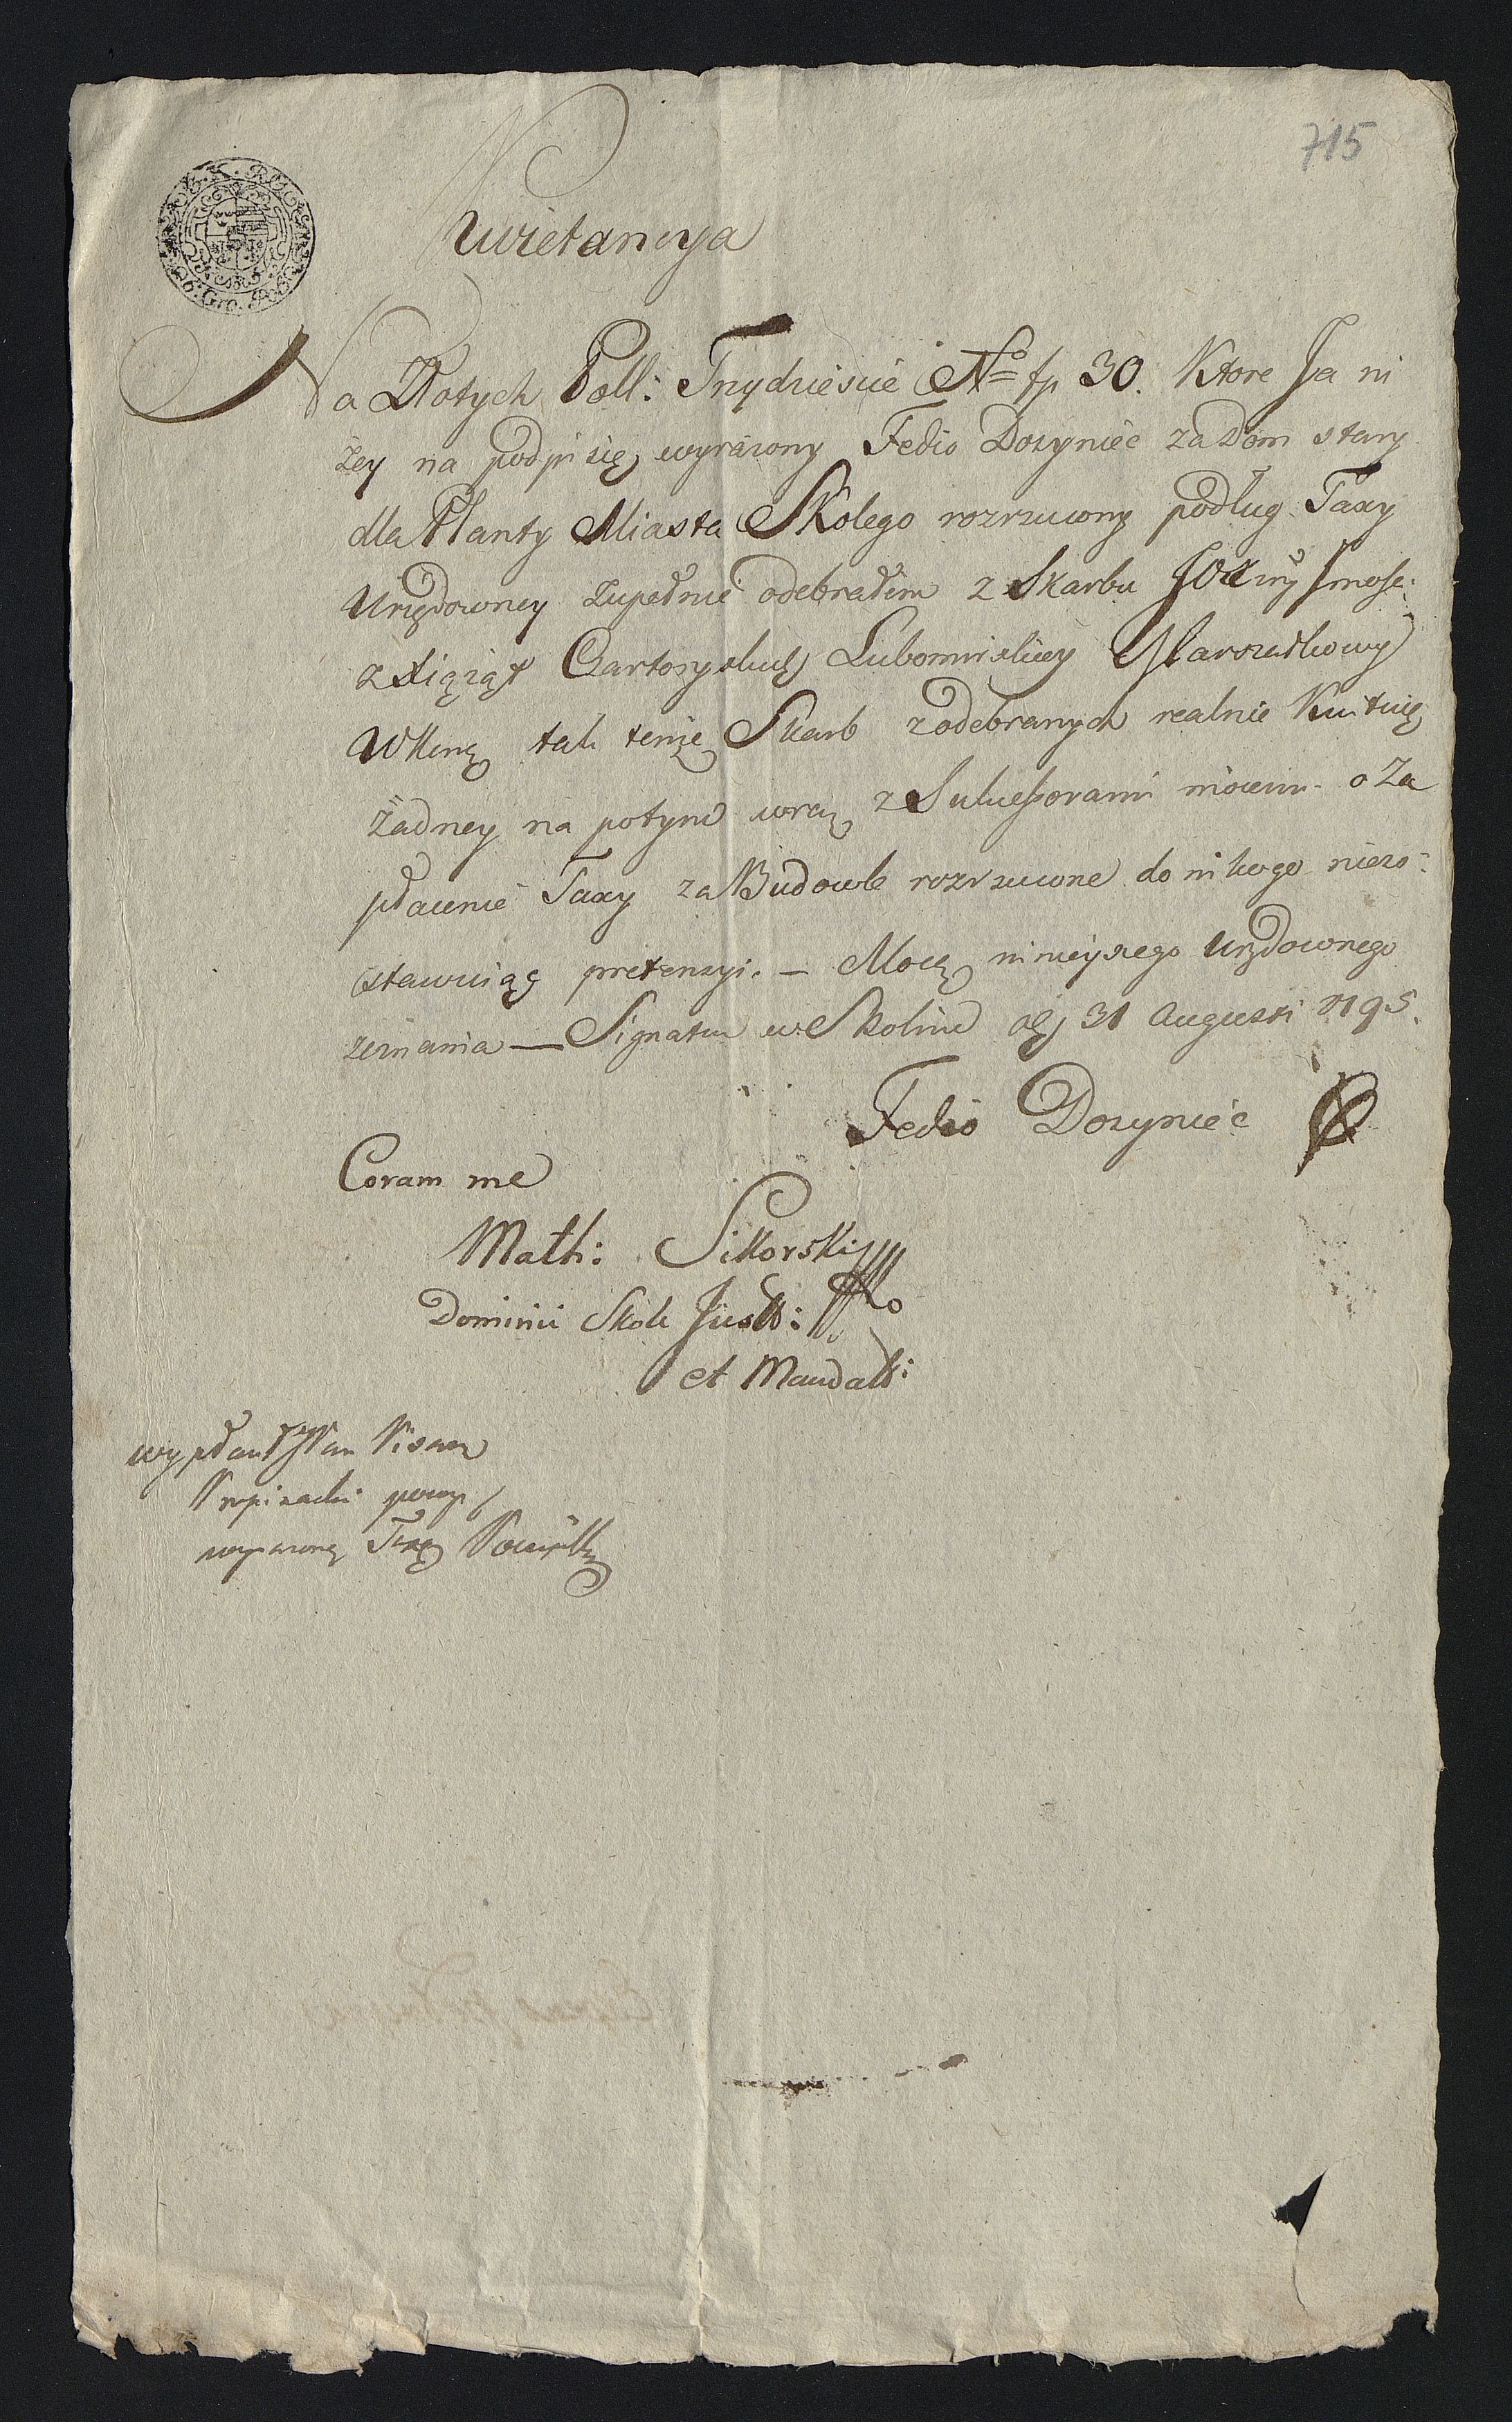 715
6. Gro.
Kwietancya
Na Złotych Poll: Trzydzieście No fp 30. Ktore Ja ni
żey na podpisię wyrażony Fedio Dozynieć za Dom stary
dla Planty Miasta Skolego rozrzucony podług Taxy
Urzędowney zupełnie odebrałem z Skarbu JO Xżny Jmośc:
z Xiążąt Czartoryskich Lubomirskiey Marszałkowy
tak tenże Skarb zodebranych realnie Kwituię
żadney na potym wraz z Sukcessorami moiemi o Za
płacenie Taxy za Budowle rozrzucone do nikogo niezo:
stawuiąc pretensyi. — Mocą ninieyszego Urzędownego
zeznania — Signatum w Skolim die 31 Augusti 1795.
Fedio Dozynieć
Coram me
Math: Sikorski
Dominii Skole Justt:
et Mandatt:
wypłacił Pan Pisarz
Propinacki powyż
wyrazoną Taxę